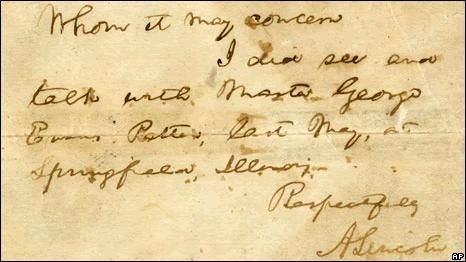 Whom it may concern
I did see and
talk with Master George
Evans Patten, last May, at
Springfield, Illinois.
Respectfully
A. Lincoln
AP